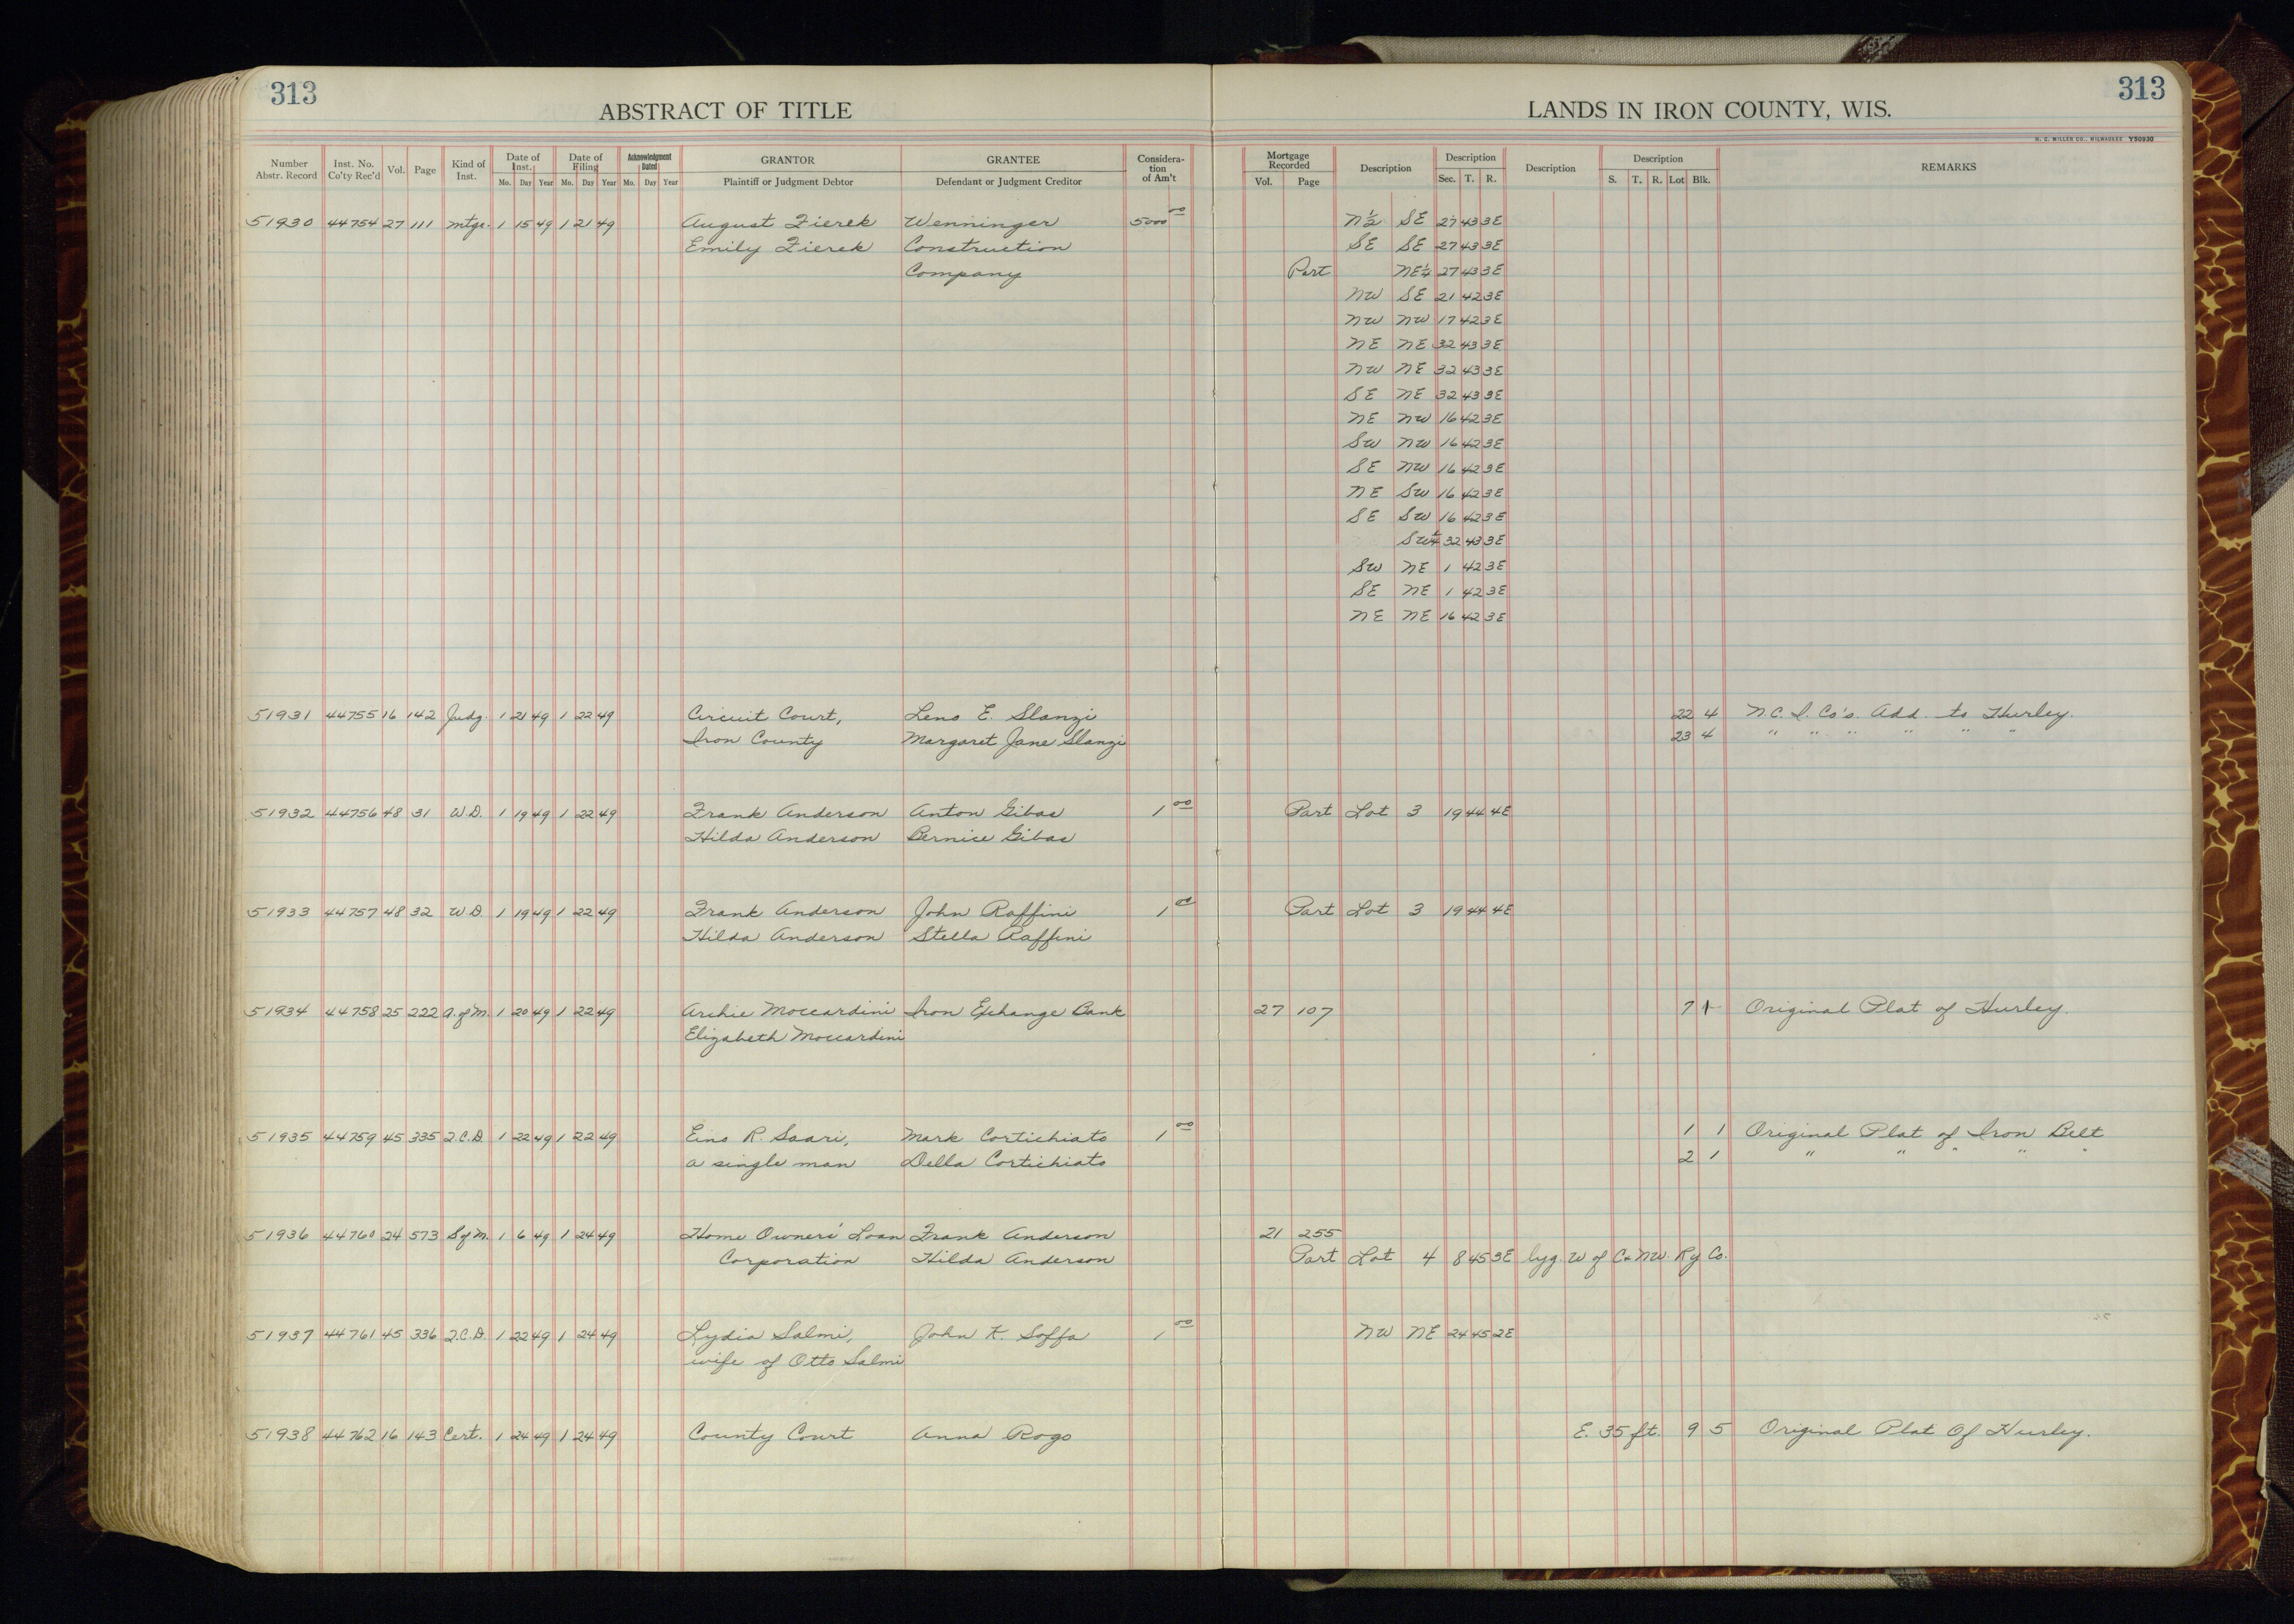 313
ABSTRACT OF TITLE
LANDS IN IRON COUNTY, WIS.
313
H. C. MILLER CO., MILWAUKEE Y50930
Number Abstr. Record Inst. No. Co'ty Rec'd Vol. Page Kind of Inst. Date of Inst. Mo. Day Year Date of Filing Mo. Day Year Acknowledgment Dated Mo. Day Year GRANTOR Plaintiff or Judgment Debtor GRANTEE Defendant or Judgment Creditor Consideration of Am't Mortgage Recorded Vol. Page Description Description Sec. T. R. Description Description S. T. R. Lot Blk. REMARKS
51930 44754 27 111 Mtge. 1 15 49 1 21 49 August Zierek Wenninger 5000 00 N½ SE 27 43 3E
Emily Zierek Construction SE SE 27 43 3E
Company Part NE¼ 27 43 3E
NW SE 21 42 3E
NW NW 17 42 3E
NE NE 32 43 3E
NW NE 32 43 3E
SE NE 32 43 3E
NE NW 16 42 3E
SW NW 16 42 3E
SE NW 16 42 3E
NE SW 16 42 3E
SE SW 16 42 3E
SW¼ 32 43 3E
SW NE 1 42 3E
SE NE 1 42 3E
NE NE 16 42 3E
51931 44755 16 142 Judg. 1 21 49 1 22 49 Circuit Court, Leno E. Slanzi 22 4 N.C.I. Co's. Add. to Hurley.
Iron County Margaret Jane Slanzi 23 4 " " " " " "
51932 44756 48 31 W.D. 1 19 49 1 22 49 Frank Anderson Anton Gibas 1 00 Part Lot 3 19 44 4E
Hilda Anderson Bernice Gibas
51933 44757 48 32 W.D. 1 19 49 1 22 49 Frank Anderson John Raffini 1 00 Part Lot 3 19 44 4E
Hilda Anderson Stella Raffini
51934 44758 25 222 A. of M. 1 20 49 1 22 49 Archie Moccardini Iron Exhange Bank 27 107 7 Original Plat of Hurley.
Elizabeth Moccardini
51935 44759 45 335 Q.C.D. 1 22 49 1 22 49 Eino R. Saari, Mark Cortichiato 1 00 1 1 Original Plat of Iron Belt
a single man Della Cortichiato 2 1 " " " " "
51936 44760 24 573 S of M. 1 6 49 1 24 49 Home Owners' Loan Frank Anderson 21 255
Corporation Hilda Anderson Part Lot 4 8 45 3E lyg. W of C & NW. Ry Co.
51937 44761 45 336 Q.C.D. 1 22 49 1 24 49 Lydia Salmi, John K. Soffa 1 00 NW NE 24 45 2E
wife of Otto Salmi
51938 44762 16 143 Cert. 1 24 49 1 24 49 County Court Anna Rogo E. 35 ft. 9 5 Original Plat Of Hurley.